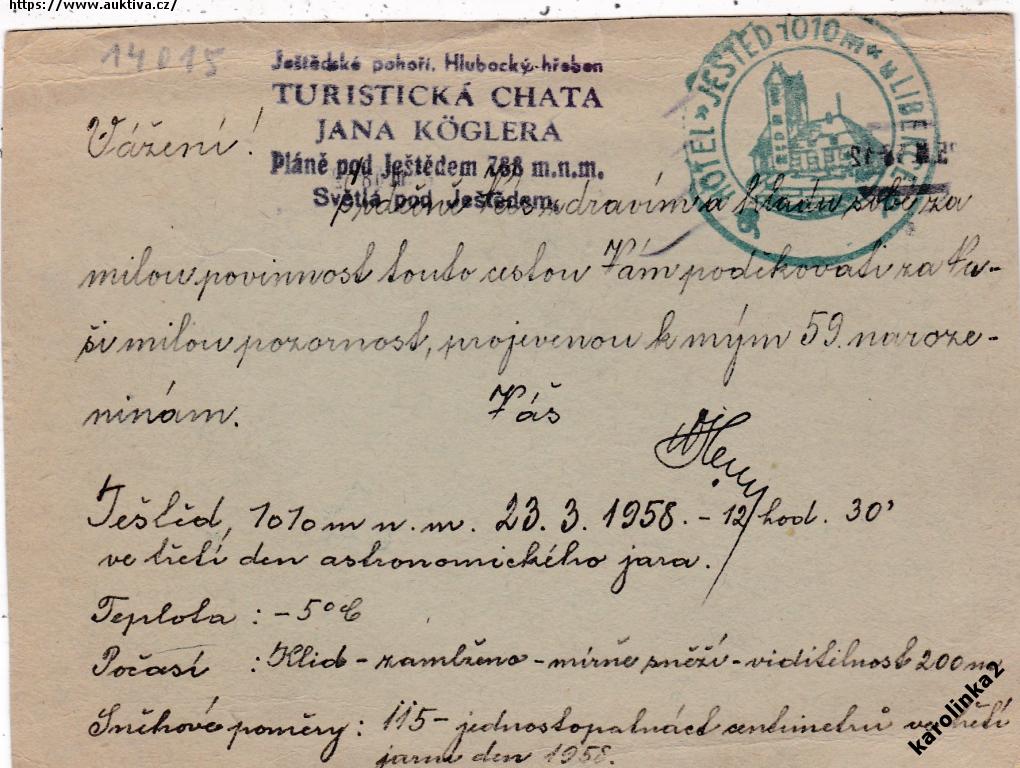 https://www.auktiva.cz/
14015
Ještědské pohoří. Hlubocký hřeben
TURISTICKÁ CHATA
JANA KÖGLERA
Pláně pod Ještědem 788 m.n.m.
Světlá pod Ještědem.
HOTEL "JEŠTĚD 1010 m" u LIBERCE
Vážení!
srdečně Vás zdravím a kladu sobě za
milou povinnost touto cestou Vám poděkovati za Va-
ši milou pozornost, projevenou k mým 59. naroze-
ninám. Váš
Ještěd, 1010 m n. m. 23. 3. 1958. - 12 hod. 30'
ve třetí den astronomického jara.
Teplota : - 5°C
Počasí : Klid - zamlženo - mírně sněží - viditelnost 200 m
Sněhové poměry : 115 - jednostopatnáct centimetrů ve třetí
jarní den 1958.
karolinka2